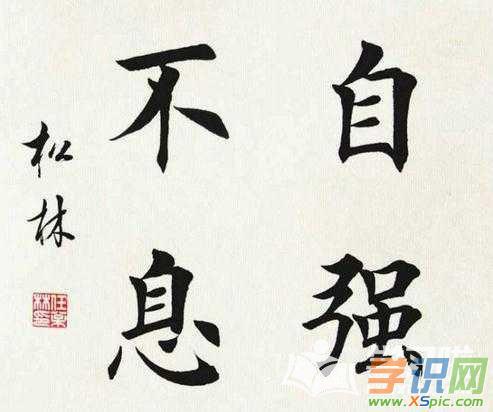 自强
不息
松林
学识网
www.XSpic.com